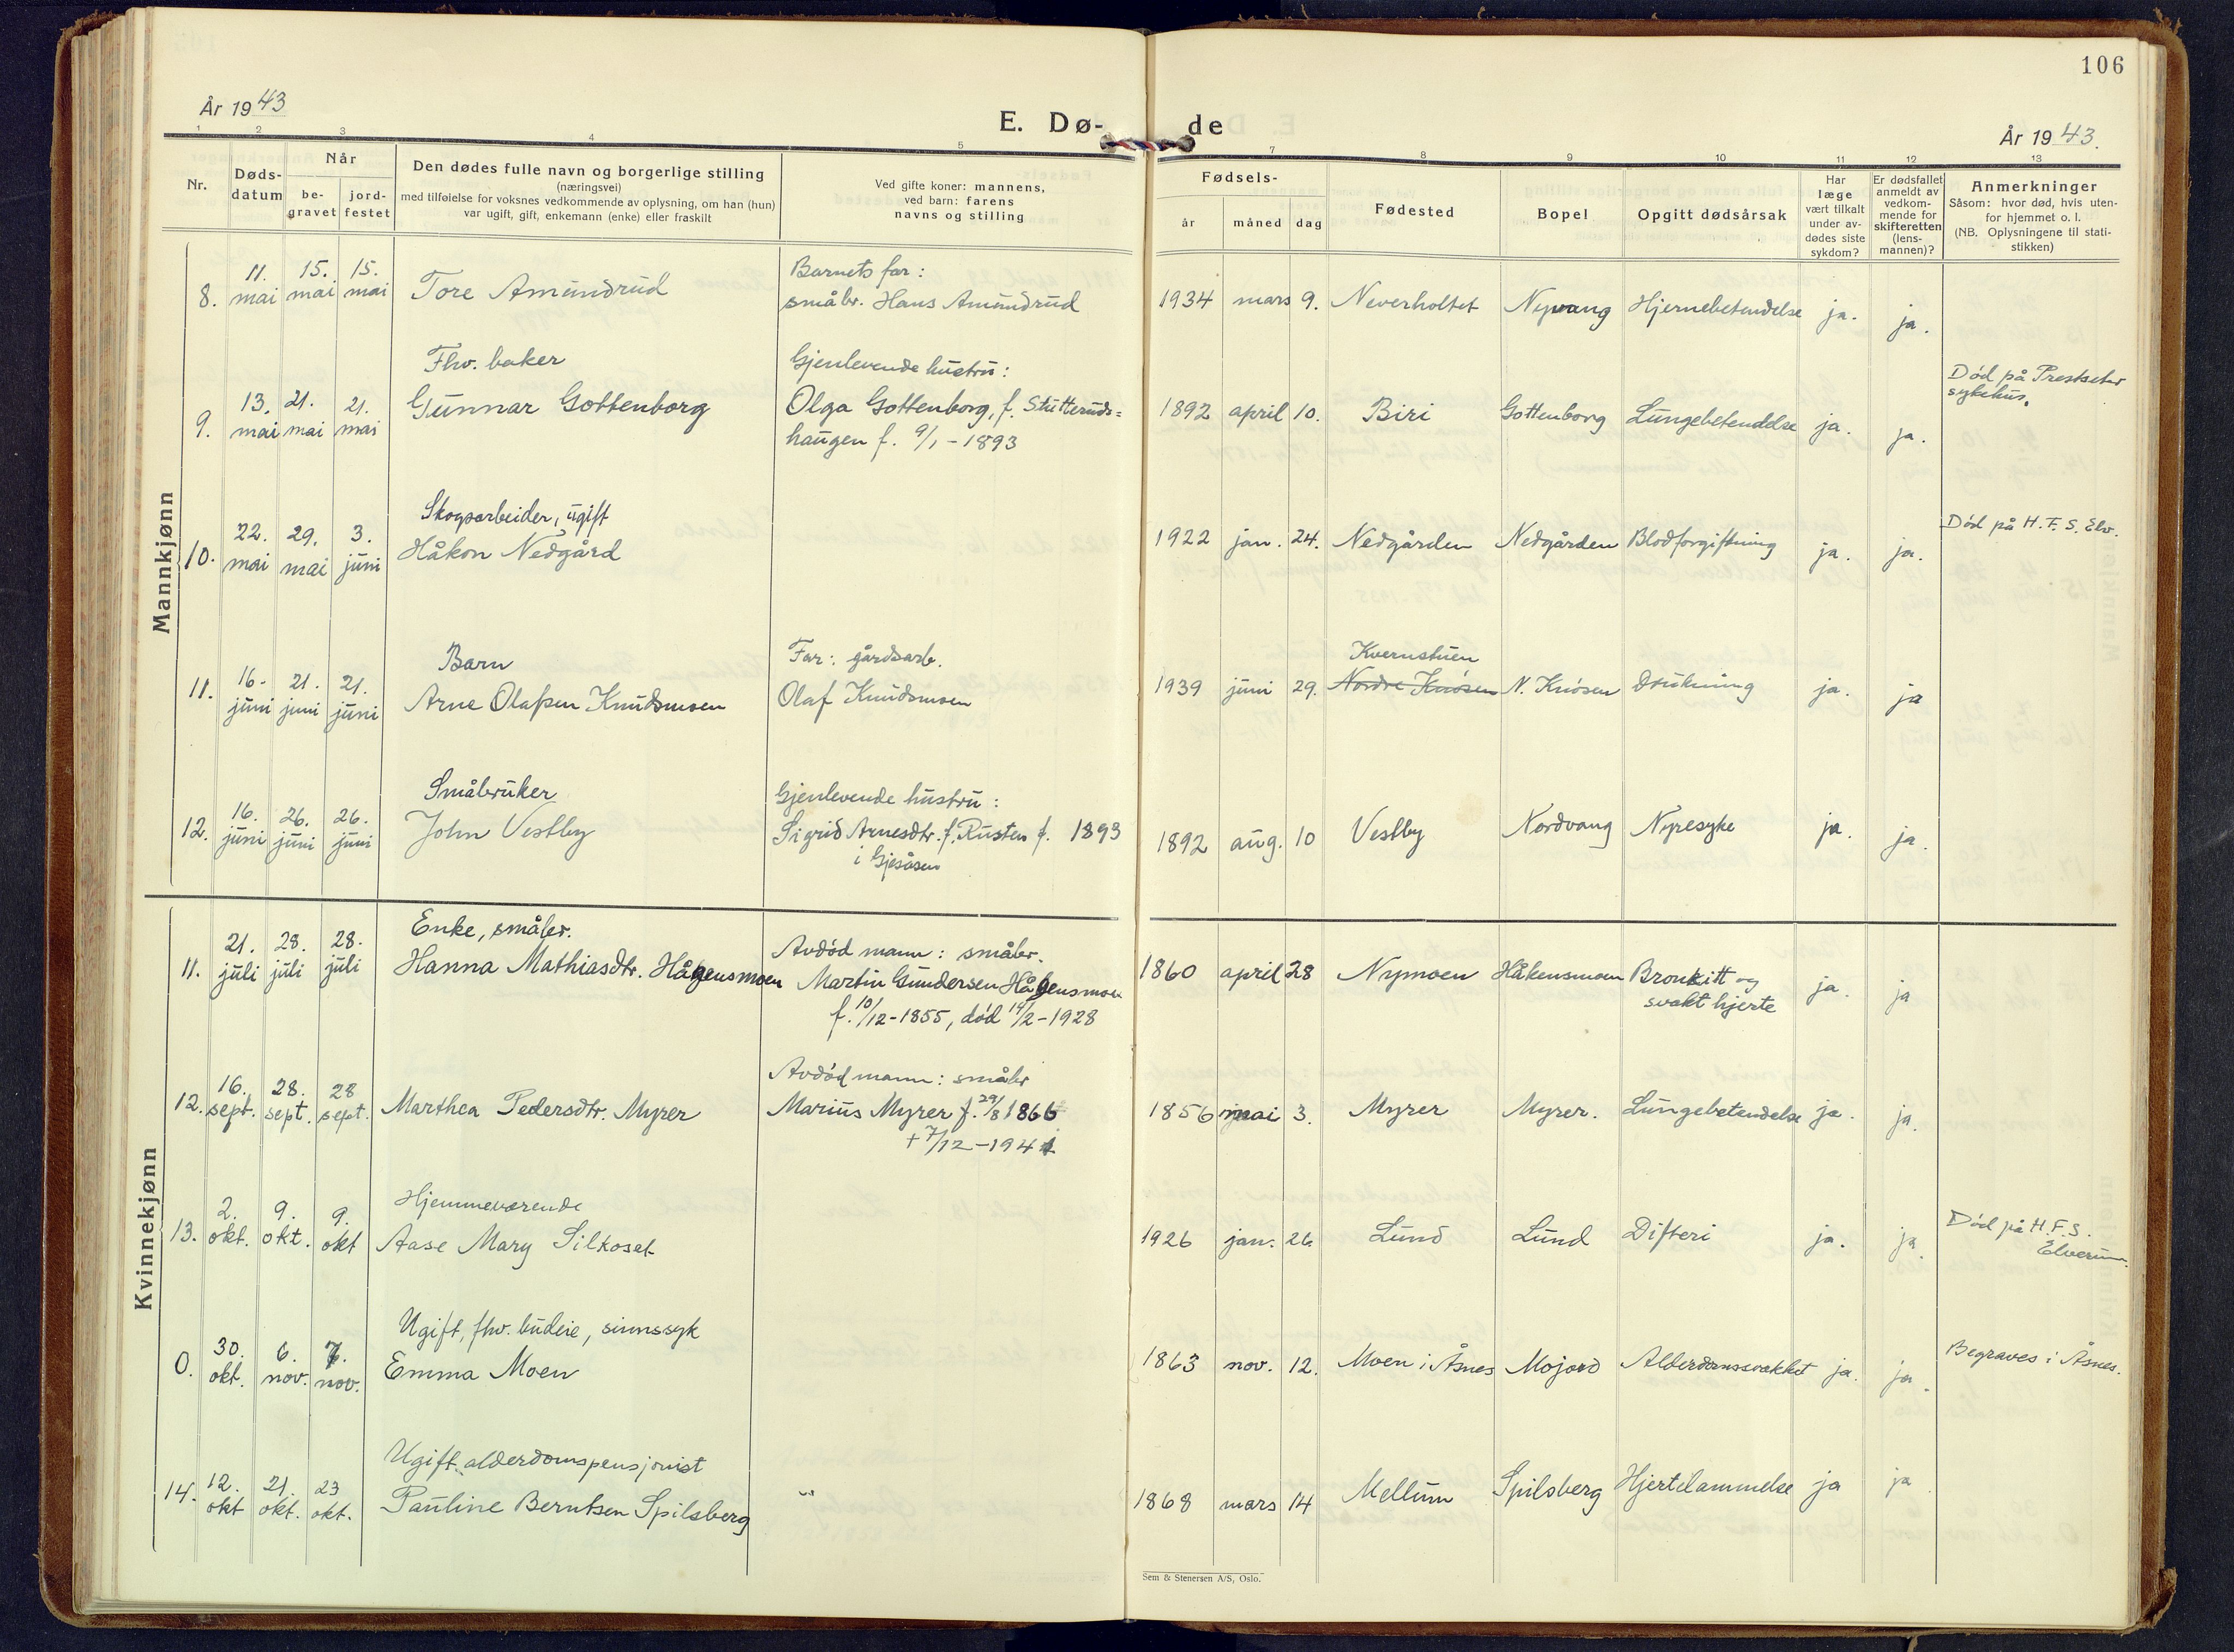 106
År 1943
E. Dø-
de
År 1943.
1 2 3 4 5 7 8 9 10 11 12 13
Nr.
Døds-
datum
Når
be-
gravet
jord-
festet
Den dødes fulle navn og borgerlige stilling
(næringsvei)
med tilføielse for voksnes vedkommende av oplysning, om han (hun)
var ugift, gift, enkemann (enke) eller fraskilt
Ved gifte koner: mannens,
ved barn: farens
navns og stilling
Fødsels-
år måned dag
Fødested
Bopel
Opgitt dødsårsak
Har
læge
vært tilkalt
under av-
dødes siste
sykdom?
Er dødsfallet
anmeldt av
vedkom-
mende for
skifteretten
(lens-
mannen)?
Anmerkninger
Såsom: hvor død, hvis uten-
for hjemmet o. l.
(NB. Oplysningene til stati-
stikken)
Mannkjønn
11. 15. 15. Barnets far:
8. mai mai mai Tore Amundrud småbr. Hans Amundrud 1934 mars 9. Neverholtet Nyvang Hjernebetendelse ja. ja.
Fhv. baker Gjenlevende hustru: Død på Prestseter
sykehus.
13. 21. 21. Gunnar Gottenborg Olga Gottenborg, f. Stutteruds= 1892 april 10. Biri Gottenborg Lungebetendelse ja. ja.
9. mai mai mai haugen f. 9/1 - 1893
Skogsarbeider, ugift Død på H.F.S. Elv.
22. 29. 3. Håkon Nedgård 1922 jan. 24. Nedgården Nedgården Blodforgiftning ja. ja.
10. mai mai juni
Barn Far: gårdsarb. Kvernstuen
16. 21. 21.
11. juni juni juni Arne Olafsen Knudsmoen Olaf Knudsmoen 1939 juni 29. Nordre Knøsen N. Knøsen Drukning ja. ja
Småbruker Gjenlevende hustru:
16. 26. 26.
12. juni juni juni John Vestby Sigrid Arnesdtr. f. Rusten f. 1893 1892 aug. 10 Vestby Nordvang Nyresyke ja. ja.
i Gjesåsen
Kvinnekjønn
Enke, småbr. Avdød mann: småbr.
21. 28. 28.
11. juli juli juli Hanna Mathiasdtr. Hågensmoen Martin Gundersen Hågensmoen 1860 april 28 Nymoen Håkensmoen Bronkitt og ja. ja
f. 10/12 - 1855, død 14/2 - 1928 svakt hjerte
Avdød mann: småbr
16. 28. 28
12. sept. sept. sept. Marthea Pedersdtr. Myrer Marius Myrer f. 29/8 1866 1856 mai 3. Myrer Myrer. Lungebetendelse ja. ja.
+ 7/12 - 1941
Hjemmeværende Død på H.F.S.
Elverum.
2. 9. 9.
13. okt. okt. okt Aase Mary Silkoset 1926 jan. 26. Lund Lund Difteri ja. ja.
Ugift, fhv. budeie, sinnssyk
30. 6. 7.
0. okt. nov. nov. Emma Moen 1863 nov. 12. Moen i Åsnes Mojord Alderdomssvakhet ja. ja. Begraves i Åsnes.
Ugift. alderdomspensjonist
12. 21. 23
14. okt okt. okt. Pauline Berntsen Spilsberg " 1868 mars 14 Mellum Spilsberg Hjertelammelse ja ja
Sem & Stenersen A/S, Oslo.